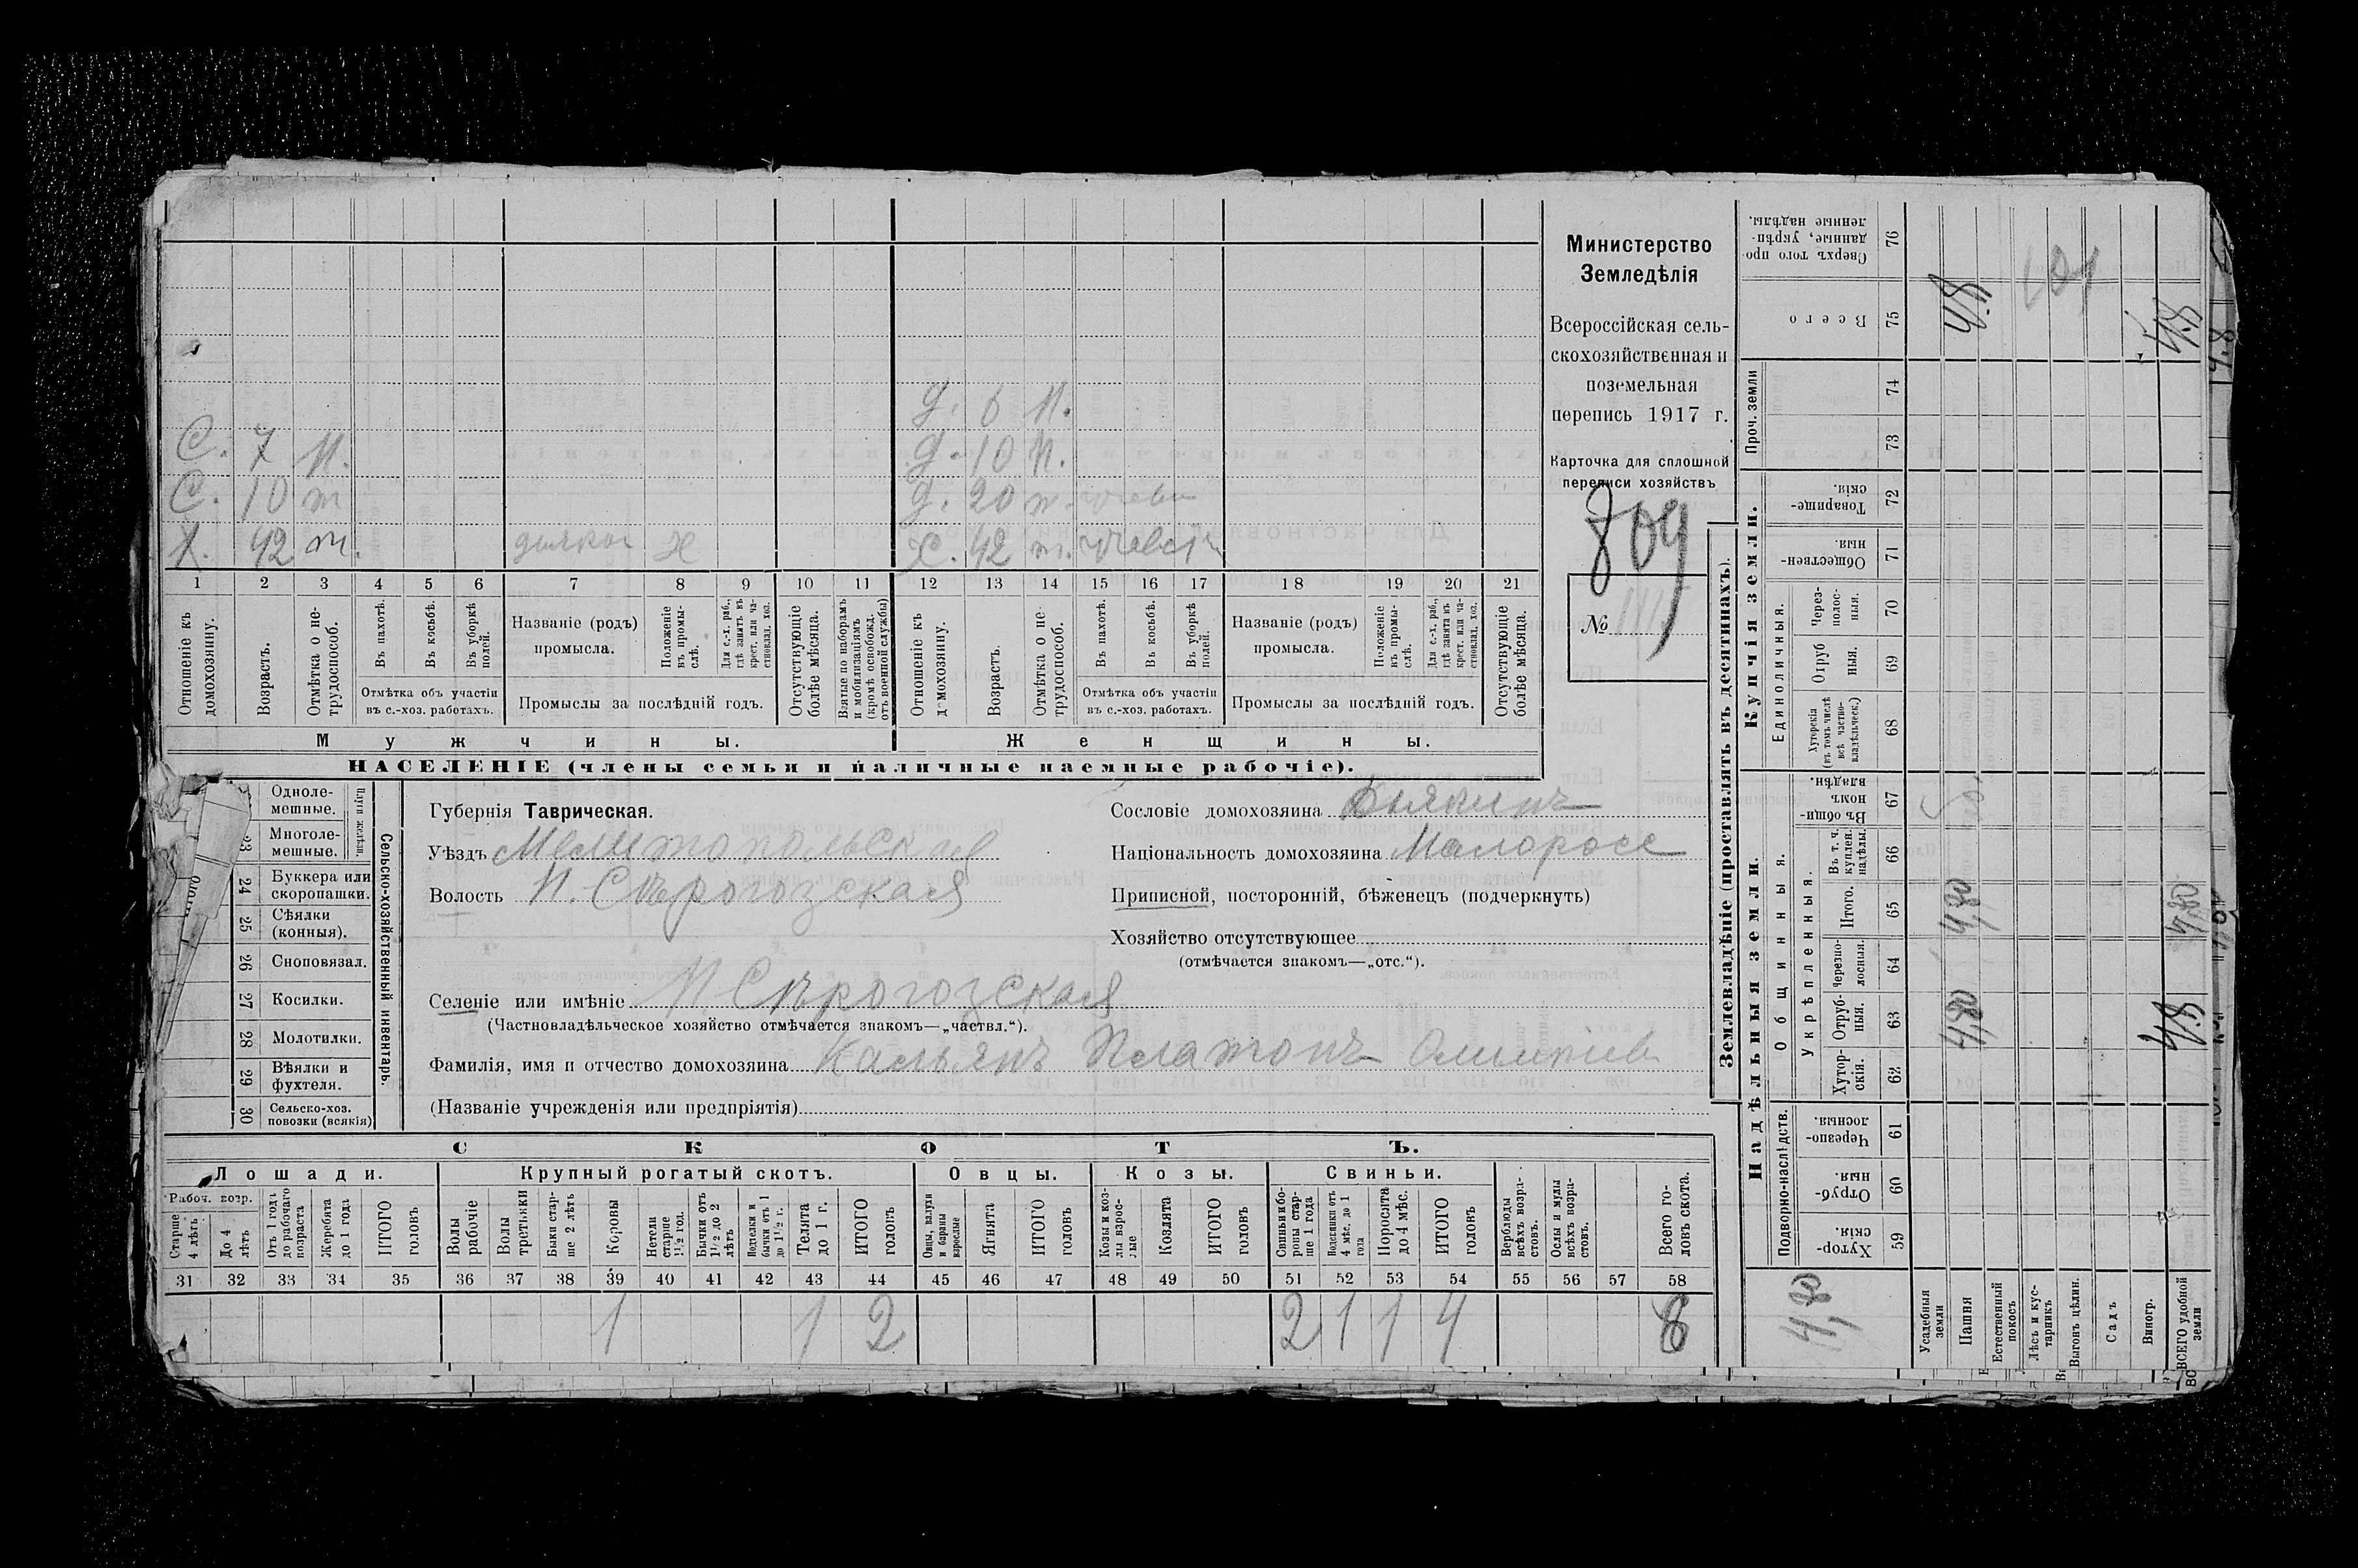 Министерство
Земледѣлія
Всероссійская сель-
скохозяйственная и
поземельная
перепись 1917 г.
Карточка для сплошной
переписи хозяйствъ
809
№
д. 6 п.
С. 7 п. д. 10 п.
С. 10 т д. 20
Х. 42 т. х Х. 42 т.
1 2 3 4 5 6 7 8 9 10 11 12 13 14 15 16 17 18 19 20 21
Отношеніе къ домохозяину.
Возрастъ.
Отмѣтка о не-трудоспособ.
Въ пахотѣ.
Въ косьбѣ.
Въ уборкѣ полей.
Отмѣтка объ участіи
въ с.-хоз. работахъ.
Названіе (родъ)
промысла.
Положеніе въ промы-слѣ.
Для с.-х. раб., гдѣ занятъ въ крест. или ча-стновлад. хоз.
Промыслы за послѣдній годъ.
Отсутствующіе болѣе мѣсяца.
Взятые по наборамъ и мобилизаціямъ (кромѣ освобожд. отъ военной службы)
Отношеніе къ домохозяину.
Возрастъ.
Отмѣтка о не-трудоспособ.
Въ пахотѣ.
Въ косьбѣ.
Въ уборкѣ полей.
Отмѣтка объ участіи
въ с.-хоз. работахъ.
Названіе (родъ)
промысла.
Положеніе въ промы-слѣ.
Для с.-х. раб., гдѣ занята въ крест. или ча-стновлад. хоз.
Промыслы за послѣдній годъ.
Отсутствующіе болѣе мѣсяца.
Мужчины. Женщины.
НАСЕЛЕНІЕ (члены семьи и наличные наемные рабочіе).
Одноле-
мешные.
Многоле-
мешные.
Плуги желѣзн.
24 Буккера или
скоропашки.
25 Сѣялки
(конныя).
26 Сноповязал.
27 Косилки.
28 Молотилки.
29 Вѣялки и
фухтеля.
30 Сельско-хоз.
повозки (всякія)
Сельско-хозяйственный инвентарь.
Губернія Таврическая.
Уѣздъ Мелитопольская
Волость Н. Сѣрогозская
Селеніе или имѣніе Н Сѣрогозская
(Частновладѣльческое хозяйство отмѣчается знакомъ—„частвл.“).
Фамилія, имя и отчество домохозяина Кальянъ Платонъ
(Названіе учрежденія или предпріятія)
Сословіе домохозяина
Національность домохозяина Малоросс
Приписной, посторонній, бѣженецъ (подчеркнуть)
Хозяйство отсутствующее
(отмѣчается знакомъ—„отс.“).
СКОТЪ.
Лошади. Крупный рогатый скотъ. Овцы. Козы. Свиньи.
Рабоч. возр.
Старше 4 лѣтъ
До 4 лѣтъ
Отъ 1 года до рабочаго возраста
Жеребята до 1 года
ИТОГО головъ
Волы рабочіе
Волы третьяки
Быки стар-ше 2 лѣтъ
Коровы
Нетели старше 1½ год.
Бычки отъ 1½ до 2 лѣтъ
Подтелки и бычки отъ 1 до 1½ г.
Телята до 1 г.
ИТОГО головъ
Овцы, валухи и бараны взрослые
Ягнята
ИТОГО головъ
Козы и коз-лы взрос-лые
Козлята
ИТОГО головъ
Свиньи и бо-ровы стар-ше 1 года
Подсвинки отъ 4 мѣс. до 1 года
Поросята до 4 мѣс.
ИТОГО головъ
Верблюды всѣхъ возра-стовъ.
Ослы и мулы всѣхъ возра-стовъ.
Всего го-ловъ скота.
31 32 33 34 35 36 37 38 39 40 41 42 43 44 45 46 47 48 49 50 51 52 53 54 55 56 57 58
1 1 2 2 1 1 4
Землевладѣніе (проставлять въ десятинахъ).
Надѣльныя земли. Купчія земли.
Подворно-наслѣдств.
Общинныя.
Укрѣпленныя.
Единоличныя.
Проч. земли
Хутор-скія. 59
Отруб-ныя. 60
Черезпо-лосныя. 61
Хутор-скія. 62
Отруб-ныя. 63
Черезпо-лосныя. 64
Итого. 65
Въ т. ч. куплен. надѣлы. 66
Въ общи-номъ владѣн. 67
Хуторскія (въ томъ числѣ всѣ частно-владѣльческ.) 68
Отруб ныя. 69
Через-полос-ныя. 70
Обществен-ныя. 71
Товарище-скія. 72
73
74
Всего 75
Сверхъ того про-данные, укрѣп-ленные надѣлы. 76
Усадебныя земли
Пашня
Естественный покосъ
Лѣсъ и кус-тарникъ
Выгонъ цѣлин.
Садъ
Виногр.
ВСЕГО удобной земли
4,80
4,80 4,80 4.8
4.8 4,80 4.8